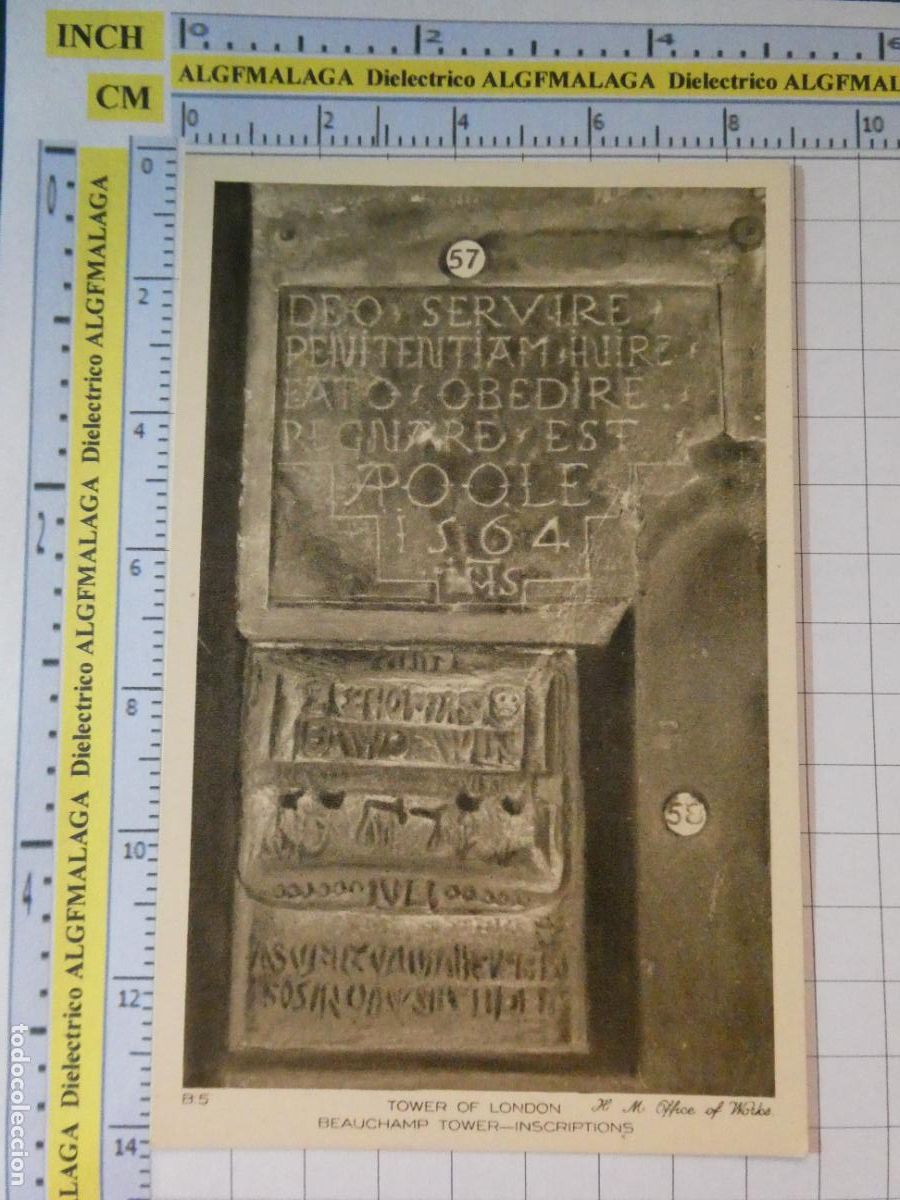 INCH
0 2 4 6
ALGFMALAGA Dielectrico ALGFMALAGA Dielectrico ALGFMAL
CM
0 2 4 6 8 10
0 2 4
0 2 4 6 8 10 12 14
ALAGA Dielectrico ALGFMALAGA Dielectrico ALGFMALAGA Dielectrico ALGFMALAGA
57
DEO SERVIRE
PENITENTIAM INIRE
FATO OBEDIRE
REGNARE EST
A POOLE
1564
IHS
THOMAS
BAWDEWIN
58
B 5
TOWER OF LONDON H M Office of Works
BEAUCHAMP TOWER—INSCRIPTIONS
todocoleccion